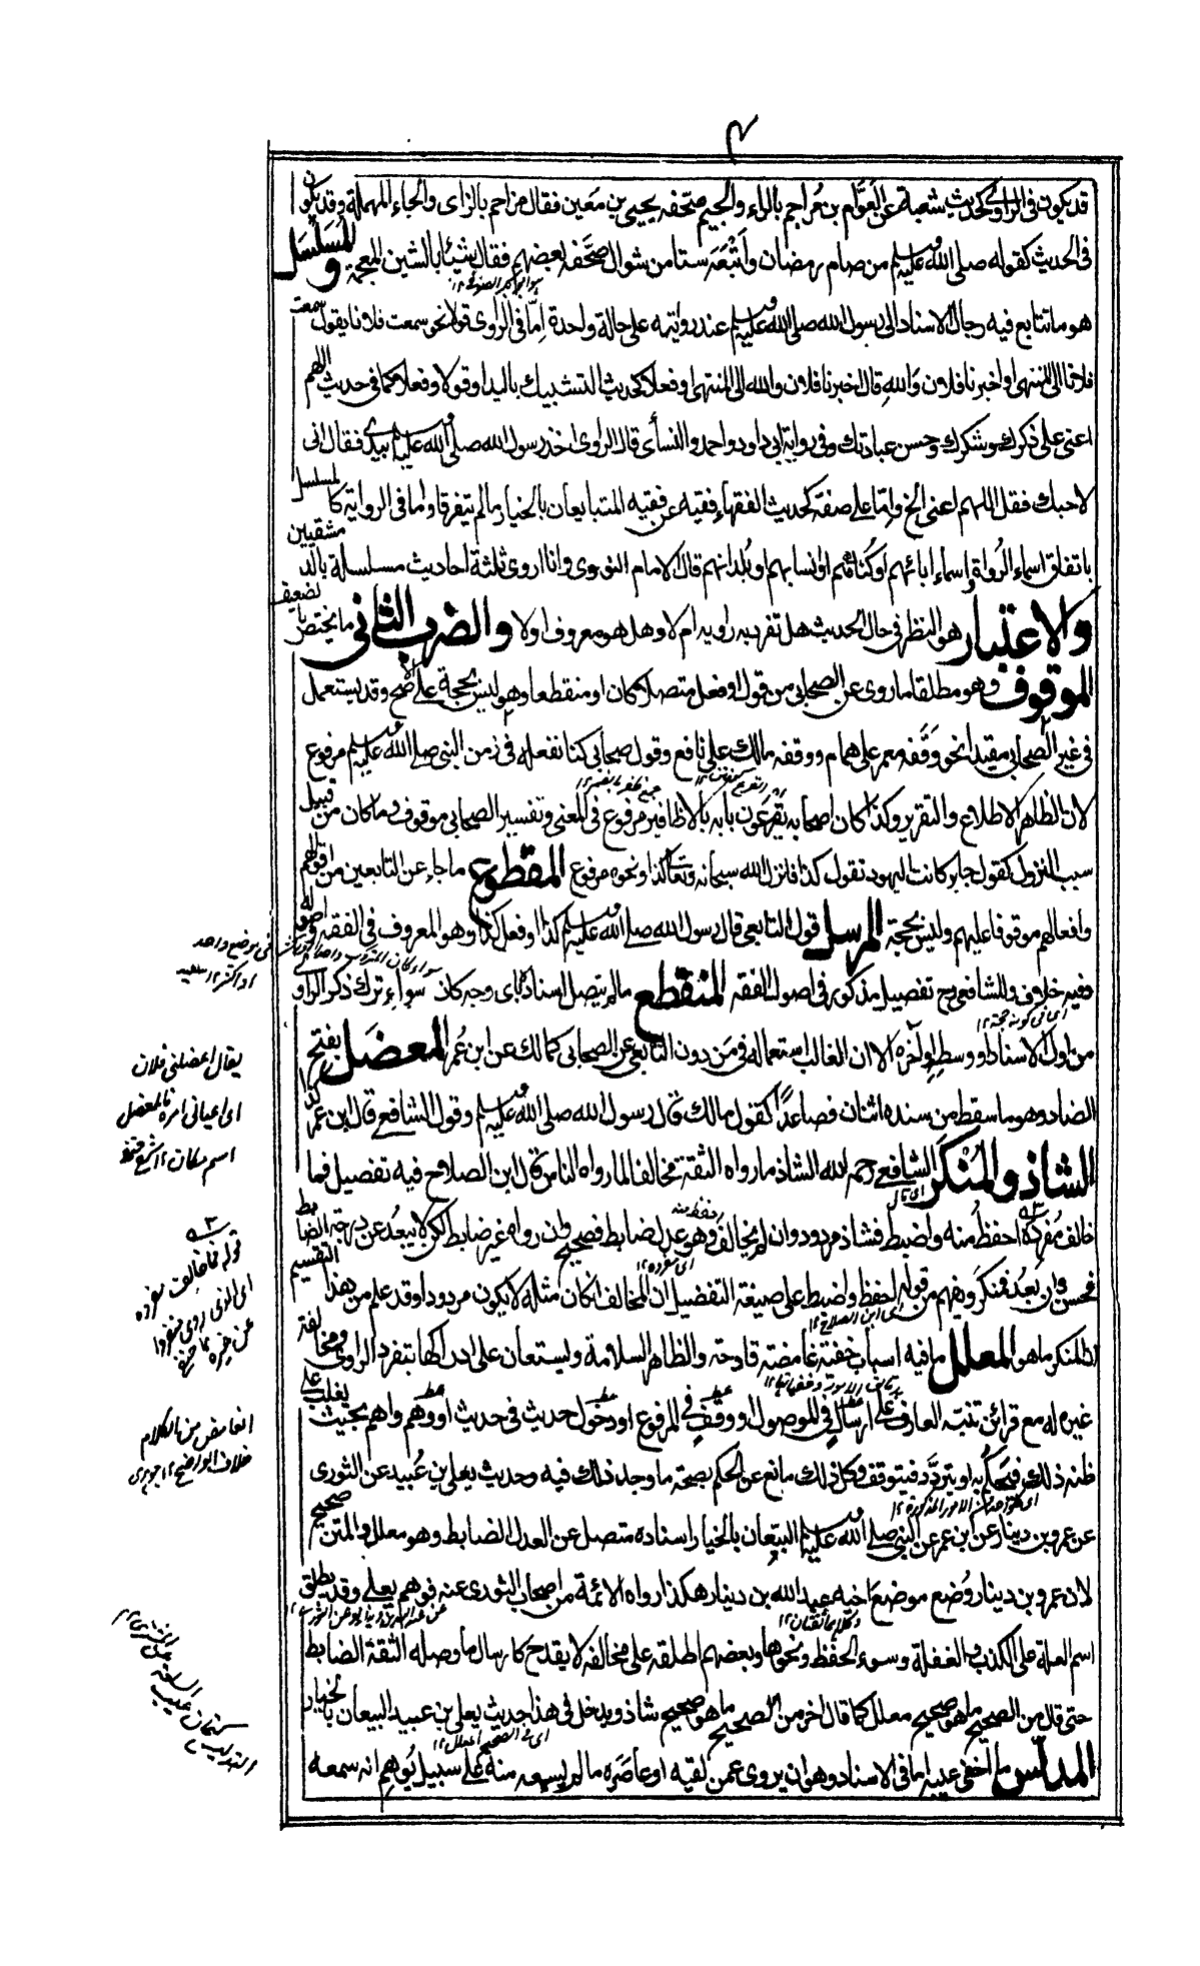 ٤
قد يكون في الراوي كحديث شعبة عن العوام بن مُراجم بالراء والجيم صحّفه يحيى بن مَعين فقال مزاحم بالزاى والحاء المهملة وقد يكون
فى الحديث كقوله صلى الله عليه وسلم من صام رمضان وأتْبَعَه ستا من شوال صحَّفه بعضهم فقال شيئا بالشين المعجمة والمُسَلسَل
هو ما تتابع فيه رجال الاسناد الى رسول الله صلى الله عليه وسلم عند روايته على حالة واحدة إمّا فى الراوى قولا نحو سمعت فلانا يقول سمعت
فلانا الى المنتهى او اخبرنا فلان والله قال اخبرنا فلان والله الى المنتهى او فعلا كحديث التشبيك باليد او قولا وفعلا كما فى حديث اللهم
اعنى على ذكرك وشكرك وحسن عبادتك وفى رواية ابى داود واحمد والنسأى قال الراوى اخذ رسول الله صلى الله عليه وسلم بيدى فقال انى
لاحبك فقل اللهم اعنى الخ وامّا على صفة كحديث الفقهاء فقيه عن فقيه المتبايعان بالخيار مالم يتفرقا واما فى الرواية كالمسلسل
باتفاق اسماء الرُواة واسماء ابائهم او كُناهم او انسابهم او بُلدانهم قال الامام النووى وانا اروى ثلثة احاديث مسلسلة بالدمشقيين
والاعتبار هو النظر فى حال الحديث هل تفرد به راويه ام لا وهل هو معروف او لا والضرب الثانى ما يختص بالضعيف
الموقوف وهو مطلقا ما روى عن الصحابى من قول او فعل متصلا كان او منقطعا وهو ليس بحجة على الاصح وقد يستعمل
فى غير الصحابى مقيدا نحو وَقَفه معمر على همام ووقفه مالك على نافع وقول صحابى كنا نفعله فى زمن النبى صلى الله عليه وسلم مرفوع
لان الظاهر الاطلاع والتقرير وكذا كان اصحابه يقرعون بابه بالاظافير مرفوع فى المعنى وتفسير الصحابى موقوف وما كان من قبيل
سبب النزول كقول جابر كانت اليهود تقول كذا فانزل الله سبحانه وتعالى كذا ونحوه مرفوع المقطوع ما جاء عن التابعين من اقوالهم
وافعالهم موقوفا عليهم وليس بحجة المرسل قول التابعى قال رسول الله صلى الله عليه وسلم كذا او فعل كذا وهو المعروف فى الفقه واصوله
وفيه خلاف وللشافعى رح تفصيل مذكور فى اصول الفقه المنقطع مالم يتصل اسناده باى وجه كان سواء ترك ذكر الراوى
من اول الاسناد او وسطه او آخره الا ان الغالب استعماله فى مَن دون التابعى عن الصحابى كمالك عن ابن عُمر المعضَل بفتح
الضاد وهو ما سقط من سنده اثنان فصاعدًا كقول مالك قال رسول الله صلى الله عليه وسلم وقول الشافعى قال ابن عمر كذا
الشاذ والمُنْكَر الشافعى رحمه الله الشاذ ما رواه الثقة مخالفا لما رواه الناس قال ابن الصلاح فيه تفصيل فما
خالف مُفرده احفظ منه واضبط فشاذ مردود وان لم يخالف وهو عدل ضابط فصحيح وان رواه غير ضابط لكن لا يبعُد عن درجة الضابط
فحسن وان بَعُد فمنكر ويفهم من قوله احفظ واضبط على صيغة التفضيل ان المخالف ان كان مثله لا يكون مردودا وقد علم من هذا التقسيم
ان المنكر ما هو المعلل ما فيه اسباب خفية غامضة قادحة والظاهر السلامة ويستعان على ادراكها بتفرد الراوى ومخالفة
غيره له مع قرائن تنبّه العارف على ارسال فى الموصول او وقف فى المرفوع او دخول حديث فى حديث او وهم واهم بحيث يغلب على
ظنه ذلك فيحكم به او يتردّد فيتوقف وكل ذلك مانع عن الحكم بصحة ما وجد ذلك فيه وحديث يعلى بن عُبيد عن الثورى
عن عمرو بن دينار عن ابن عمر عن النبى صلى الله عليه وسلم البيّعان بالخيار اسناده متصل عن العدل الضابط وهو معلل والمتن صحيح
لان عمرو بن دينار وُضع موضع اخيه عبد الله بن دينار هكذا رواه الائمة من اصحاب الثورى عنه فوهم يعلى وقد يطلق
اسم العلة على الكذب والغفلة وسوء الحفظ ونحوها وبعضهم اطلقه على مخالفة لا يقدح كارسال ما وصله الثقة الضابط
حتى قال من الصحيح ما هو صحيح معلل كما قال اخر من الصحيح ما هو صحيح شاذ ويدخل فى هذا حديث يعلى بن عبيد البيعان بالخيار
المدلّس ما اخفى عيبه اما فى الاسناد وهو ان يروى عمن لقيه او عاصَرَه مالم يسمعه منه على سبيل يُوهم انه سمعه
يقال اعضلنى فلان
اى اعيانى امره فالمعضل
اسم مكان
قوله فما خالف مفرده
اى الذى روى منفردا
عن غيره
الغامض من الكلام
خلاف الواضح